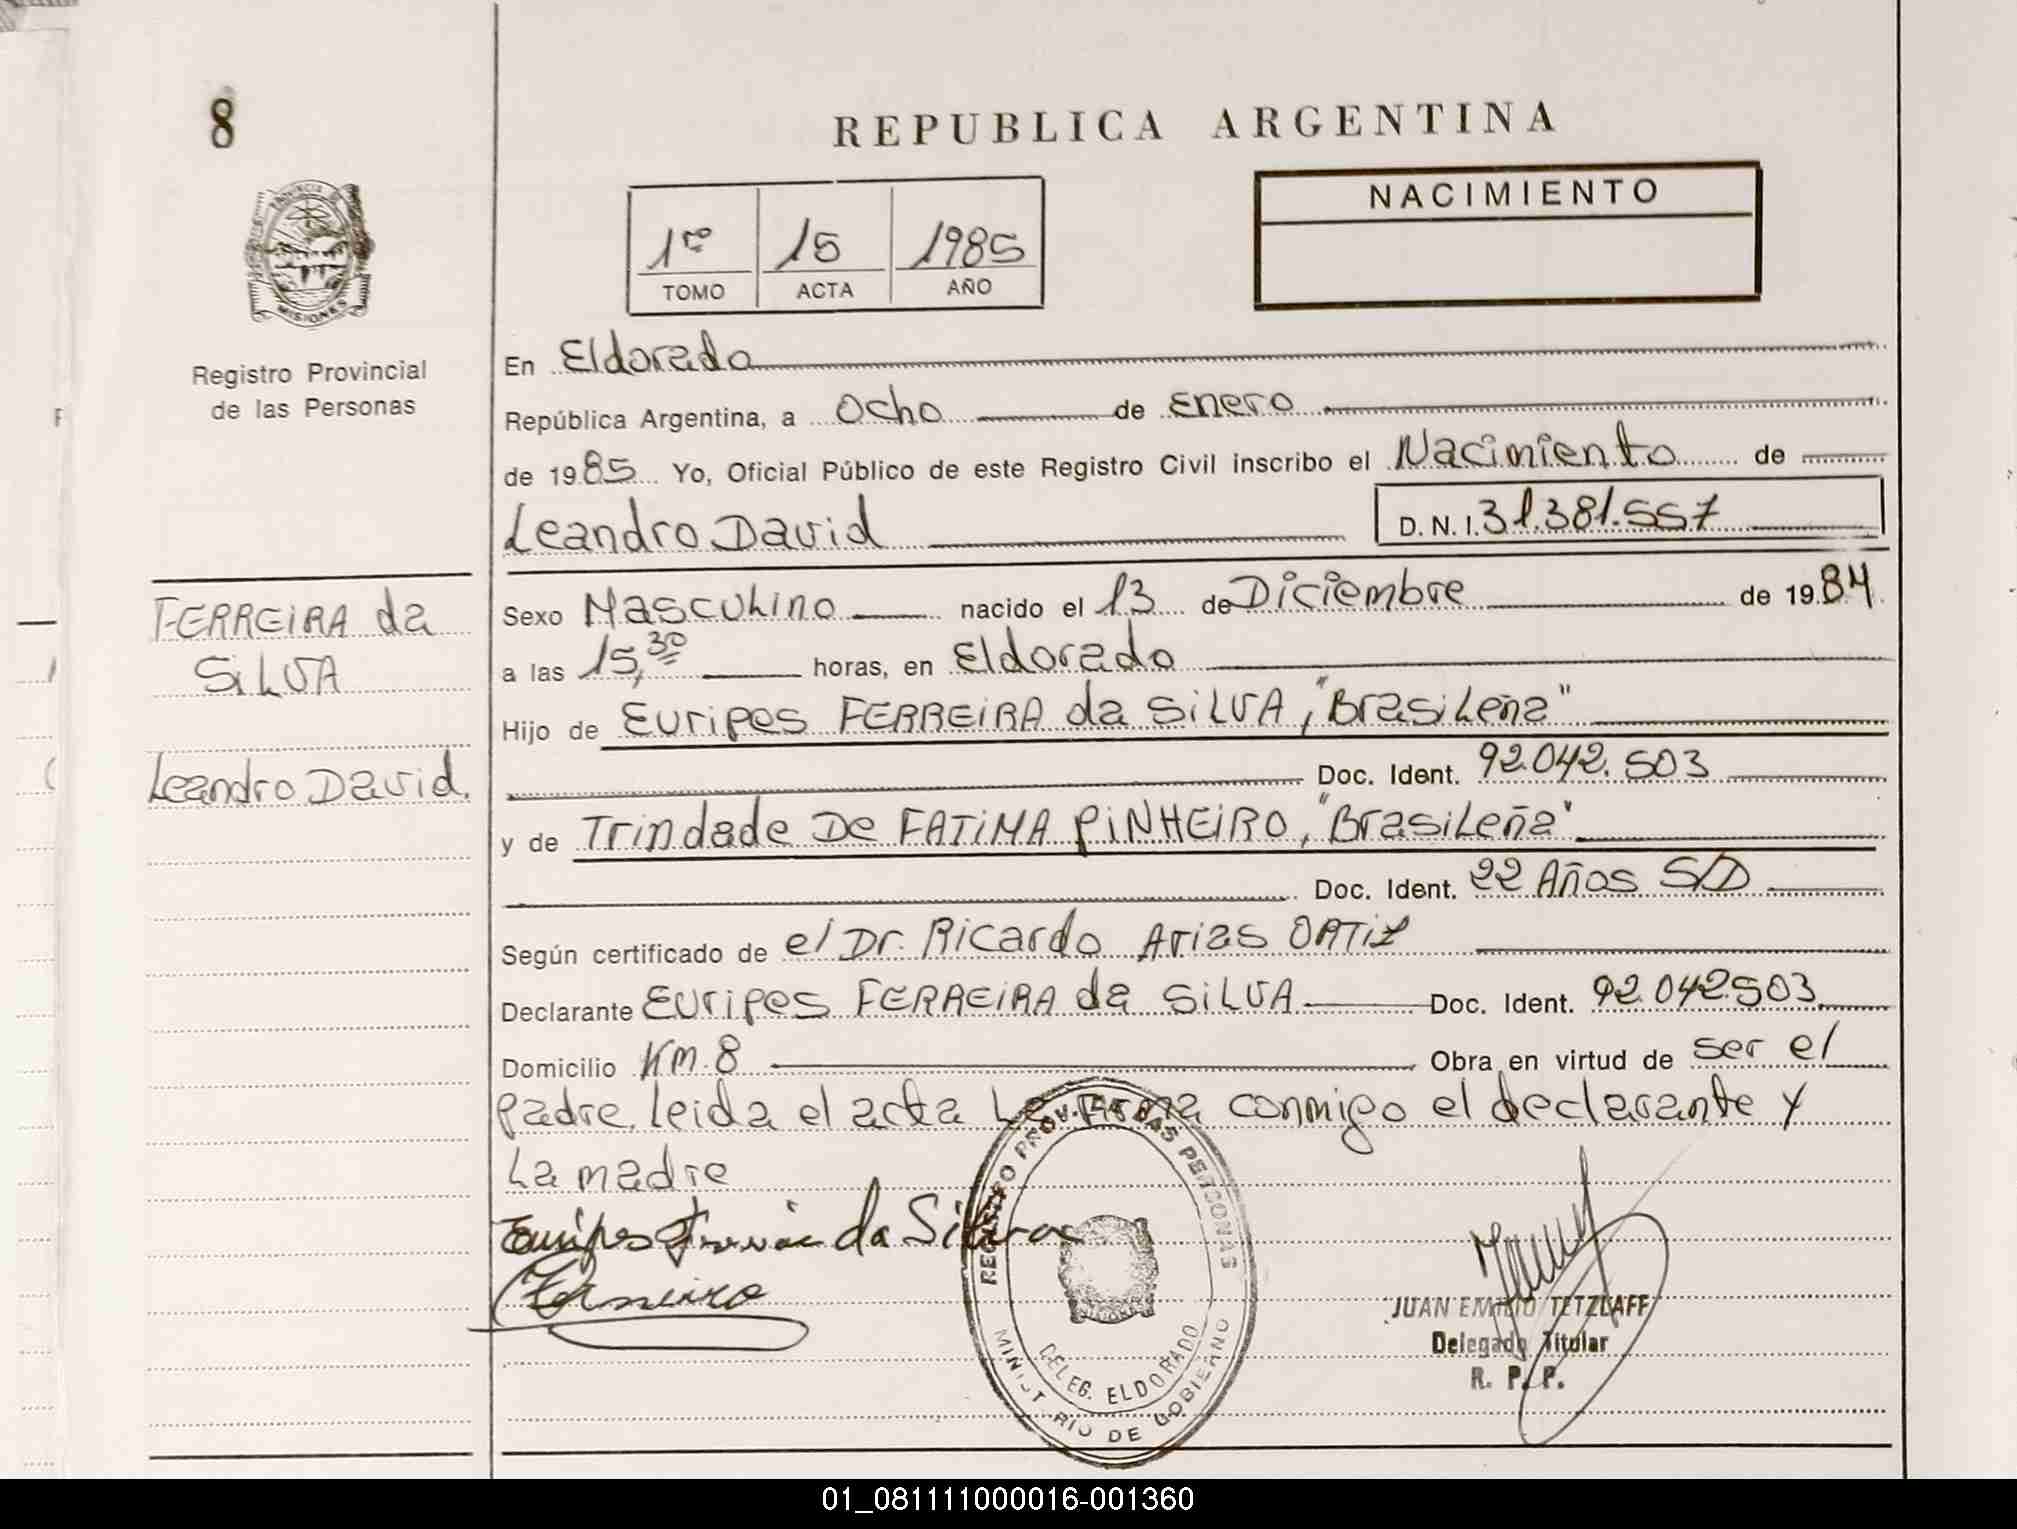 8
REPUBLICA ARGENTINA
PROVINCIA DE
MISIONES
Registro Provincial
de las Personas
NACIMIENTO
1ro 15 1985
TOMO ACTA AÑO
En Eldorado
República Argentina, a Ocho de Enero
de 1985 Yo, Oficial Público de este Registro Civil inscribo el Nacimiento de
Leandro David D.N.I. 31.381.557
FERREIRA da
SILVA
Leandro David.
Sexo Masculino nacido el 13 de Diciembre de 1984
a las 15,30 horas, en Eldorado
Hijo de Euripes FERREIRA da SILVA, "Brasileña"
Doc. Ident. 92.042.503
y de Trindade De FATIMA PINHEIRO, "Brasileña"
Doc. Ident. 22 Años S/D
Según certificado de el Dr. Ricardo Arias ORTIZ
Declarante Euripes FERREIRA da SILVA Doc. Ident. 92.042.503
Domicilio Km. 8 Obra en virtud de ser el
padre, leida el acta La Firma conmigo el declarante y
La madre
Euripes Ferreira da Silva
REGISTRO PROV. DE LAS PERSONAS
DELEG. ELDORADO
MINISTERIO DE GOBIERNO
JUAN EMILIO TETZLAFF
Delegado Titular
R. P. P.
01_081111000016-001360